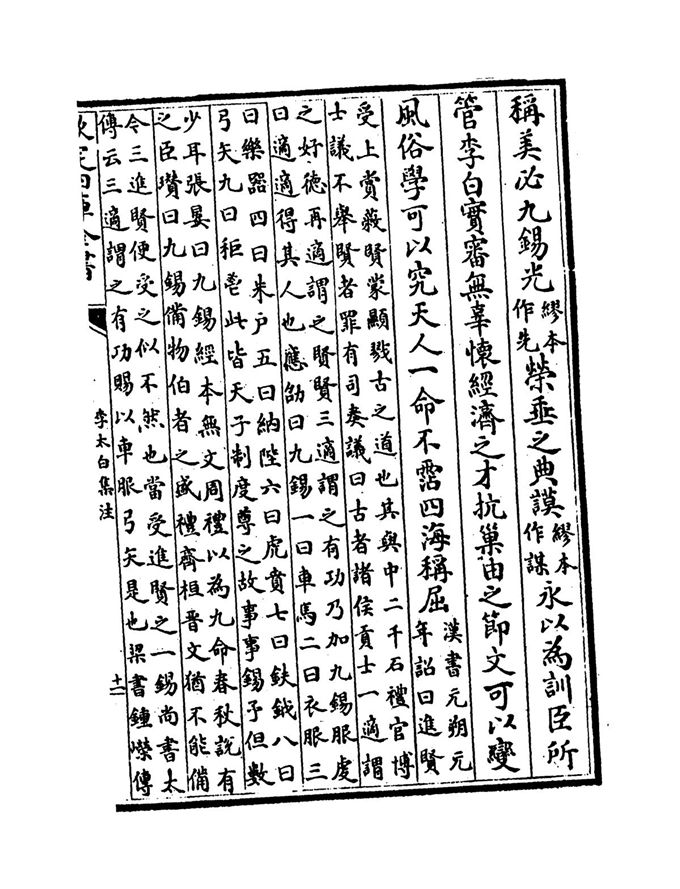 稱美必九錫光繆本作先榮垂之典謨繆本作謀永以為訓臣所
管李白實審無辜懷經濟之才抗巢由之節文可以變
風俗學可以究天人一命不霑四海稱屈漢書元朔元
年詔曰進賢
受上賞蔽賢蒙顯戮古之道也其與中二千石禮官博
士議不舉賢者罪有司奏議曰古者諸侯貢士一適謂
之好德再適謂之賢賢三適謂之有功乃加九錫服虔
曰適適得其人也應劭曰九錫一曰車馬二曰衣服三
曰樂器四曰朱戶五曰納陛六曰虎賁七曰鈇鉞八曰
弓矢九曰秬鬯此皆天子制度尊之故事事錫予但數
少耳張晏曰九錫經本無文周禮以為九命春秋說有
之臣瓚曰九錫備物伯者之盛禮齊桓晉文猶不能備
令三進賢便受之似不然也當受進賢之一錫尚書太
傳云三適謂之有功賜以車服弓矢是也梁書鍾嶸傳
欽定四庫全書
李太白集注
十二